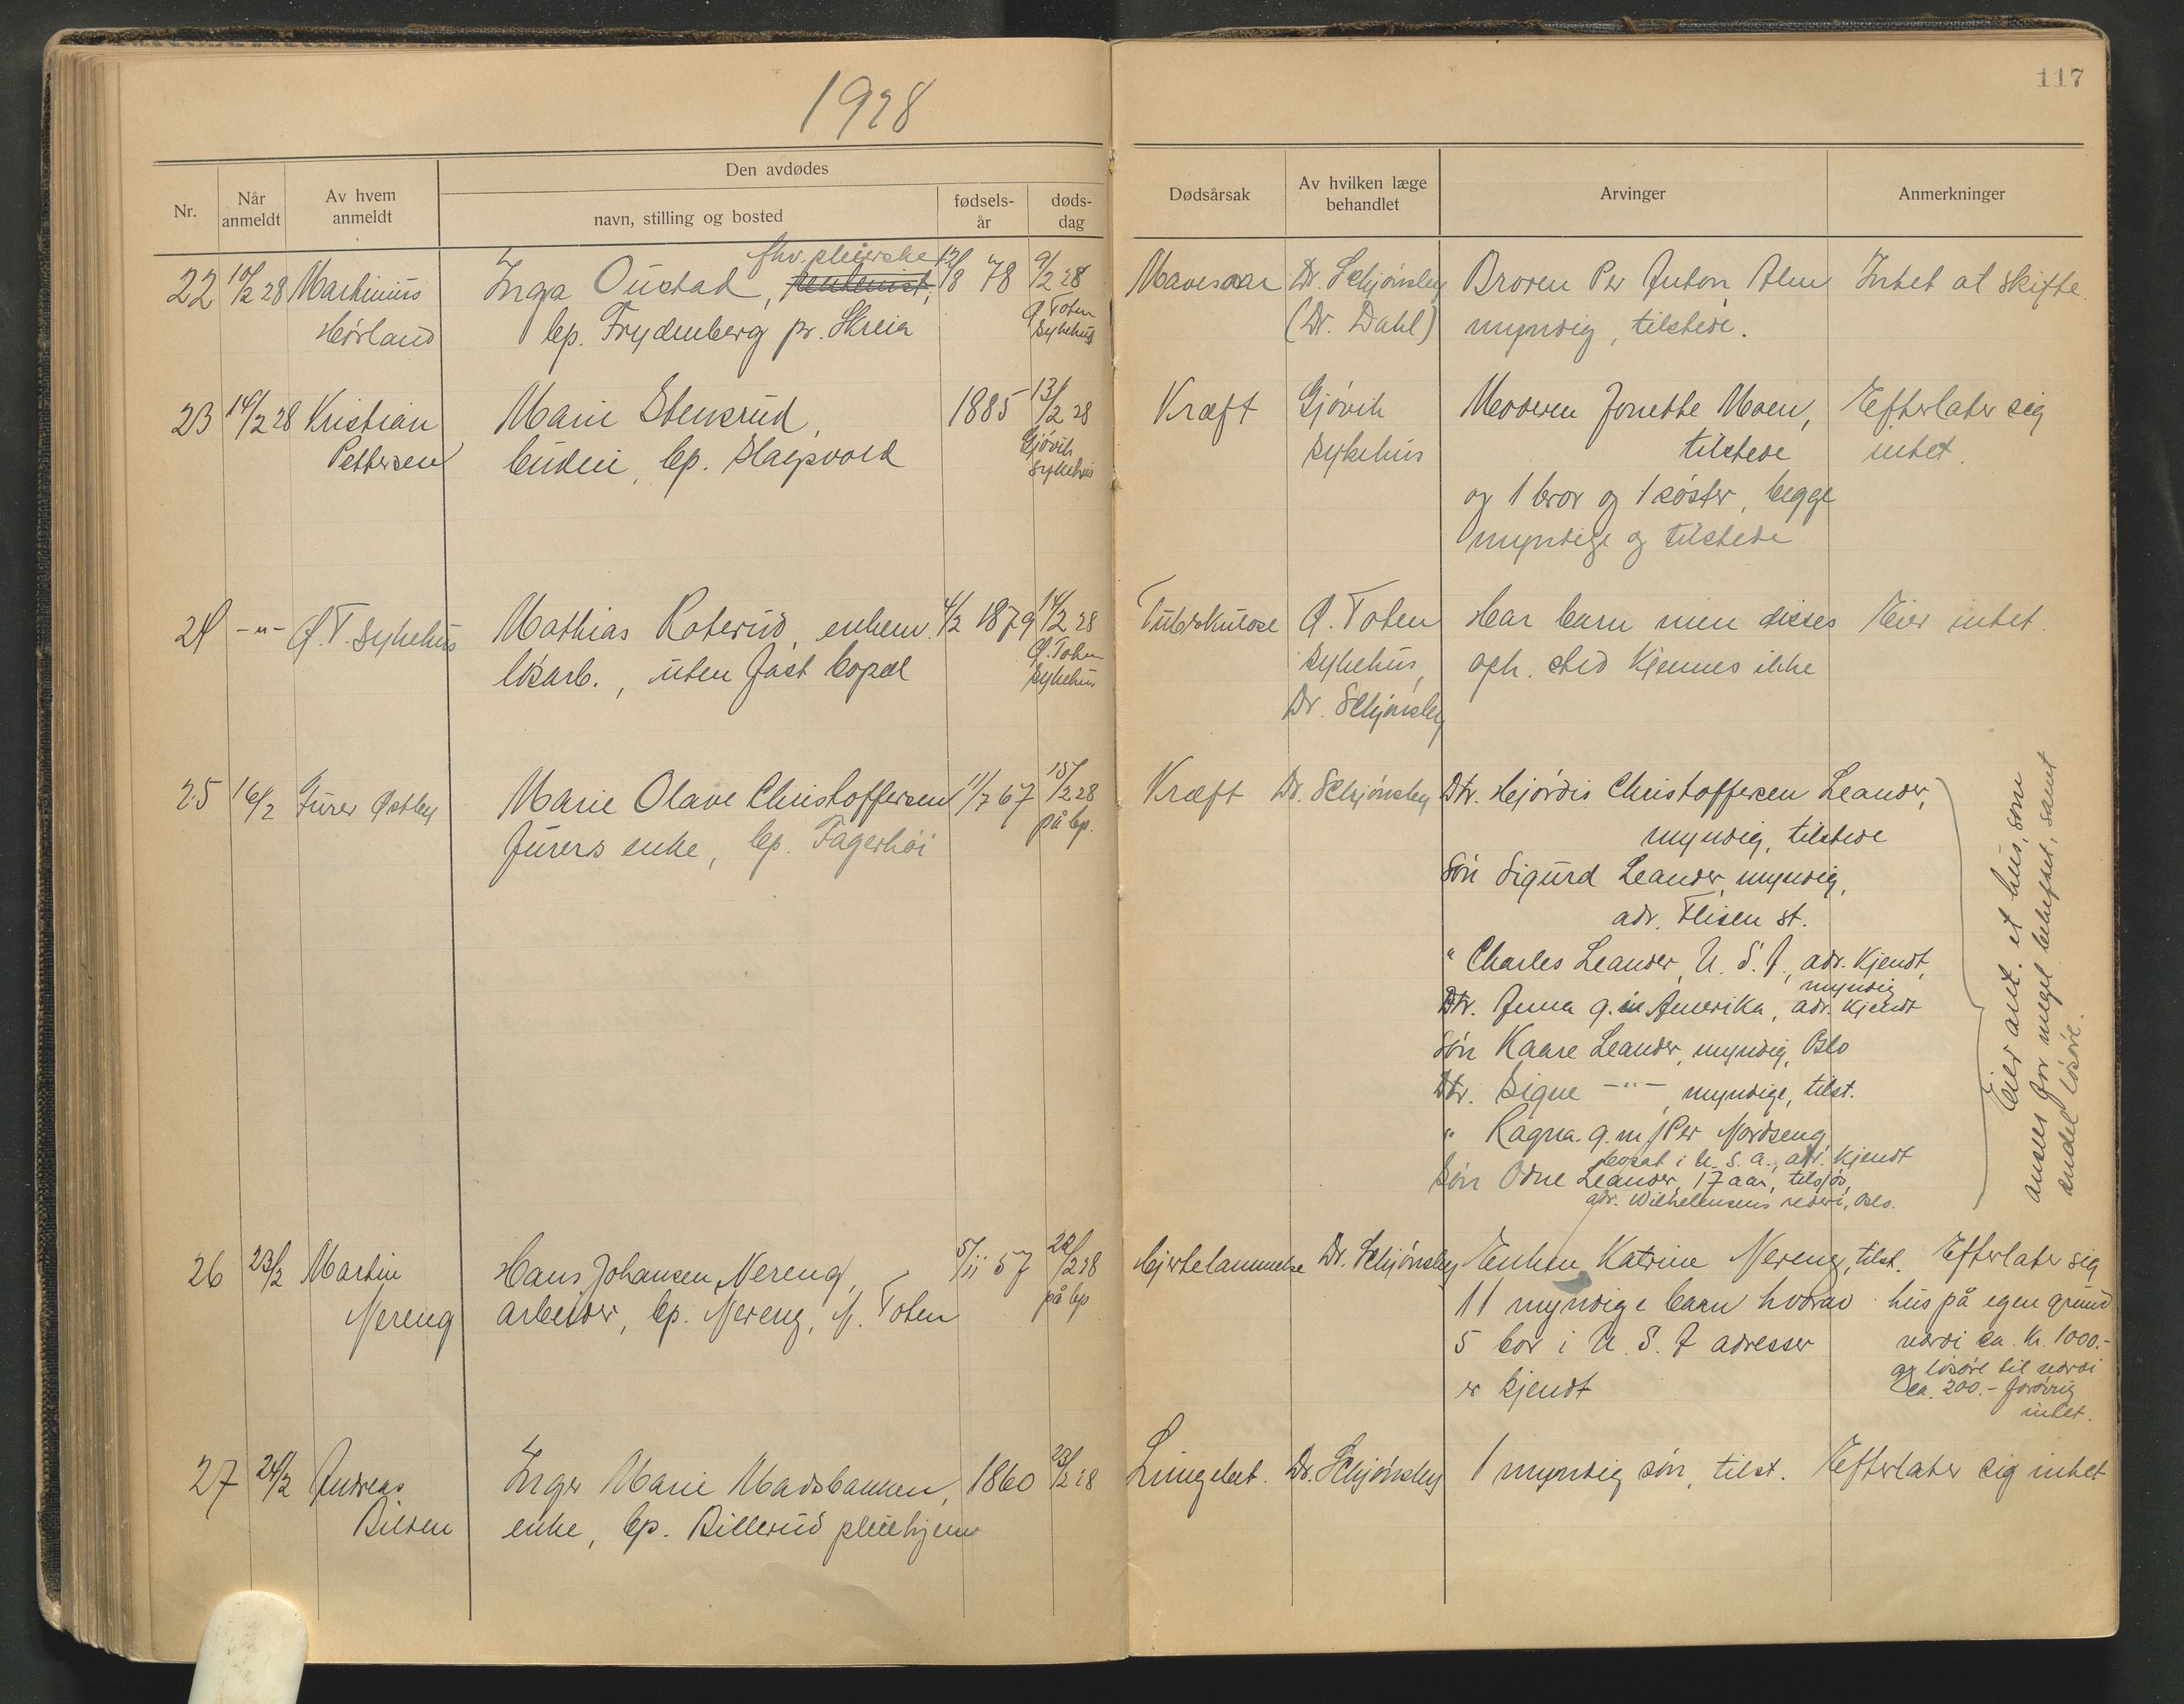 1928
117
Den avdødes
Nr.
Når anmeldt
Av hvem anmeldt
navn, stilling og bosted
fødsels-år
døds-dag
Dødsårsak
Av hvilken læge behandlet
Arvinger
Anmerkninger
22 10/2 28 Martinius Inga Oustad, fhv. pleierske 12/8 78 9/2 28 Mavesaar Dr. Schjønsby Broren Per Anton Alm Intet at skifte.
Hørland bp. Frydenberg pr. Skreia Ø. Toten sykehus (Dr. Dahl) myndig, tilstede.
23 14/2 28 Kristian Marie Stensrud, 1885 13/2 28 Kræft Gjøvik Moderen Jonette Moen, Efterlater sig
Pettersen budeie, bp. Slagsvold Gjøvik sykehus sykehus tilstede intet.
og 1 bror og 1 søster, begge
myndige og tilstede
24 -"- Ø. T. sykehus Mathias Roterud, enkem. 4/2 1879 14/2 28 Tuberkulose Ø. Toten Har barn men disses Eier intet.
løsarb., uten fast bopæl Ø. Toten sykehus sykehus, oph. sted kjennes ikke
Dr. Schjønsby
25 16/2 Furer Østby Marie Olave Christoffersen 11/7 67 15/2 28 Kræft Dr. Schjønsby Dtr. Hjørdis Christoffersen Leander,
furers enke, bp. Fagerhøi på bp. myndig, tilstede
Søn Sigurd Leander, myndig,
adr. Flisen st.
" Charles Leander, U. S. A., adr. kjendt,
myndig
Dtr. Anna g. i Amerika, adr. kjendt
Søn Kaare Leander, myndig, Oslo
Dtr. Signe -"-, myndige, tilst.
" Ragna g. m/ Per Nordseng,
bosat i U. S. A., adr. kjendt
Søn Odne Leander, 17 aar, tilsjøs,
adr. Wilhelmsens rederi, Oslo.
Eier ant. et hus, som
anses for meget beheftet, samt
endel løsøre.
26 23/2 Martin Hans Johansen Nereng, 5/11 57 22/2 28 Hjertelammelse Dr. Schjønsby Enken Katrine Nereng, tilst. Efterlater sig
Nereng arbeider, bp. Nereng, Ø. Toten på bp 11 myndige barn hvorav hus på egen grund
5 bor i U. S. A adresser verdi ca. kr. 1000.-
er kjendt og løsøre til verdi
ca. 200.- forøvrig
intet.
27 24/2 Andreas Inger Marie Madsbakken, 1860 23/2 28 Lungebet. Dr. Schjønsby 1 myndig søn, tilst. Efterlater sig intet
Bilden enke, bp. Billerud pleiehjem